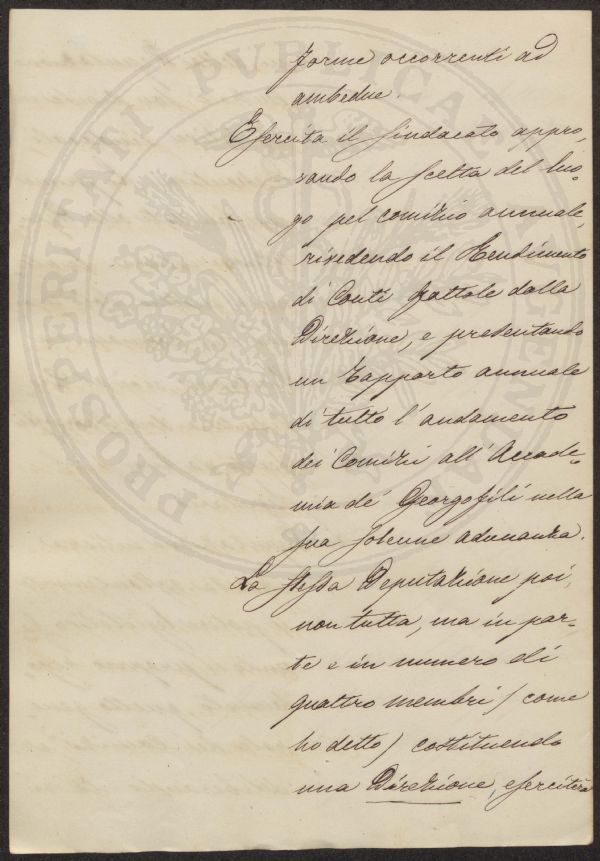 forme occorrenti ad
ambedue.
Esercita il sindacato appro,
vando la scelta del luo=
go pel comizio annuale,
rivedendo il Rendimento
di Conti fattole dalla
Direzione, e presentando
un rapporto annuale
di tutto l'andamento
dei Comizi all'Accade=
mia de' Georgofili nella
sua solenne adunanza.
La stessa Deputazione poi,
non tutta, ma in par-
te e in numero di
quattro membri / come
ho detto / costituendo
una Direzione, eserciterà
PROSPERITATI PVBLICAE AVGENDAE